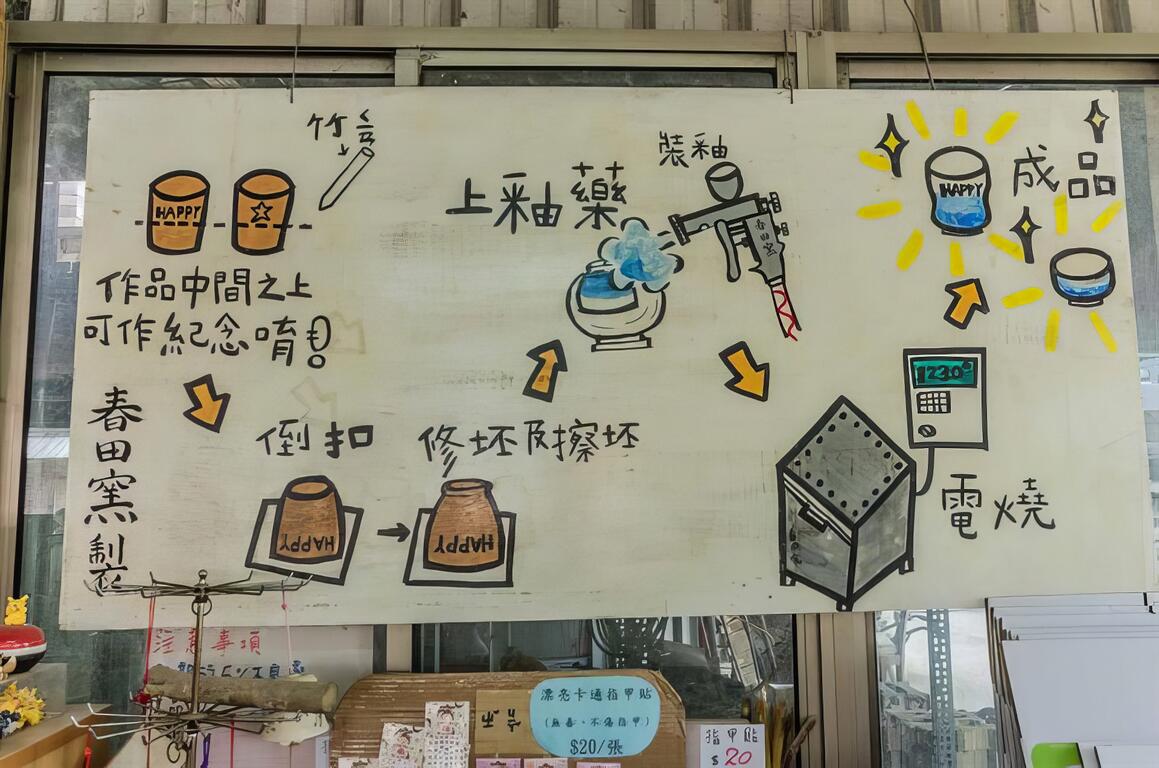 竹
HAPPY
作品中間之上
可作紀念唷!
倒扣
HAPPY
修坯及擦坯
HAPPY
上釉藥
裝釉
春田窯
1230°
電燒
成品
HAPPY
春田窯製
注意事項
漂亮卡通指甲貼
(無毒、不傷指甲)
$20/張
指甲貼
$20